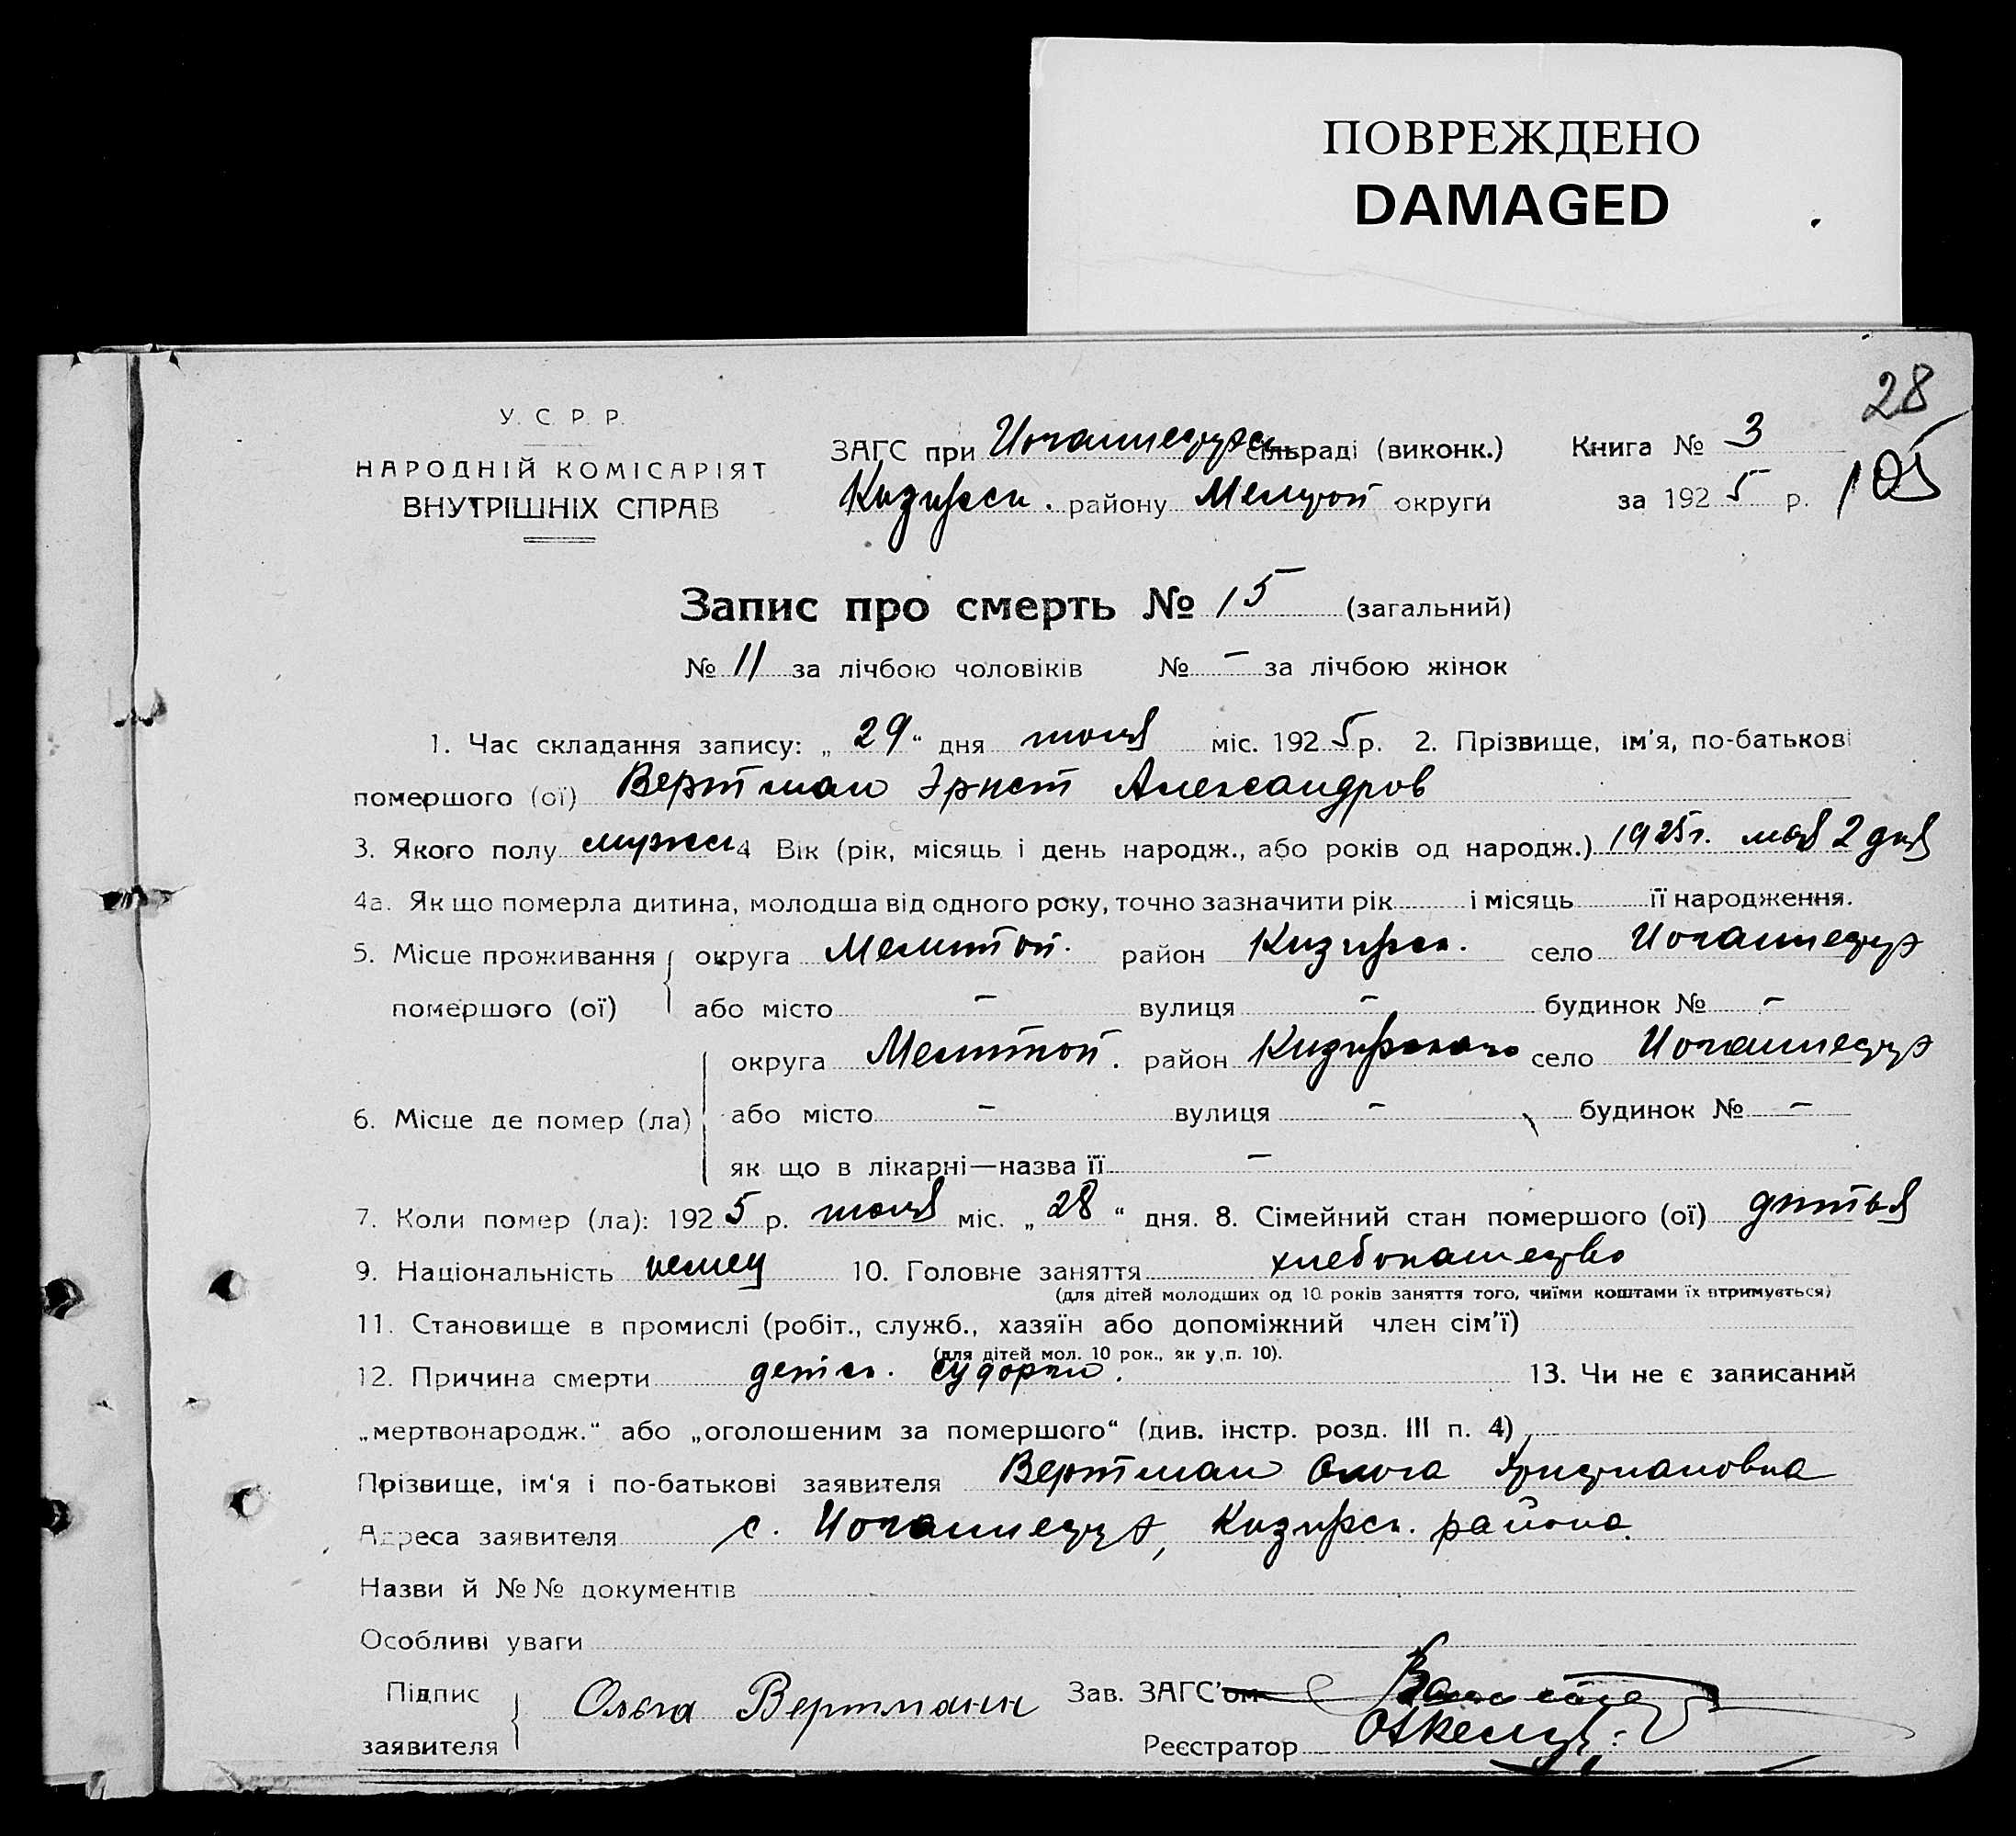 ПОВРЕЖДЕНО
DAMAGED
28
У. С. Р. Р.
НАРОДНІЙ КОМІСАРІЯТ
ВНУТРІШНІХ СПРАВ
ЗАГС при сільраді (виконк.) Книга № 3
105
району округи за 1925 р.
Запис про смерть № 15 (загальний)
№ 11 за лічбою чоловіків № - за лічбою жінок
1. Час складання запису: „ 29 “ дня июля міс. 1925 р. 2. Прізвище, ім'я, по-батькові
помершого (ої) Вертман Эрнст Александров
3. Якого полу мужск 4 Вік (рік, місяць і день народж., або років од народж.) 1925 г. мая 2 дня
4а. Як що померла дитина, молодша від одного року, точно зазначити рік і місяць її народження.
5. Місце проживання округа Мелитоп. район село
помершого (ої) або місто - вулиця - будинок № -
округа Мелитоп. район село
6. Місце де помер (ла) або місто - вулиця - будинок № -
як що в лікарні—назва її -
7. Коли помер (ла): 1925 р. июля міс. „ 28 “ дня. 8. Сімейний стан помершого (ої) дитья
9. Національність немец 10. Головне заняття хлебопашество
(для дітей молодших од 10 років заняття того, чиїми коштами їх втримується)
11. Становище в промислі (робіт., служб., хазяїн або допоміжний член сім'ї)
(для дітей мол. 10 рок., як у п. 10).
12. Причина смерти детск. судорги. 13. Чи не є записаний
„мертвонародж.“ або „оголошеним за помершого“ (див. інстр. розд. III п. 4)
Прізвище, ім'я і по-батькові заявителя Вертман Ольга Християновна
Адреса заявителя с. района.
Назви й №№ документів
Особливі уваги
Підпис заявителя Ольга Вертманн Зав. ЗАГС'ом
Реєстратор